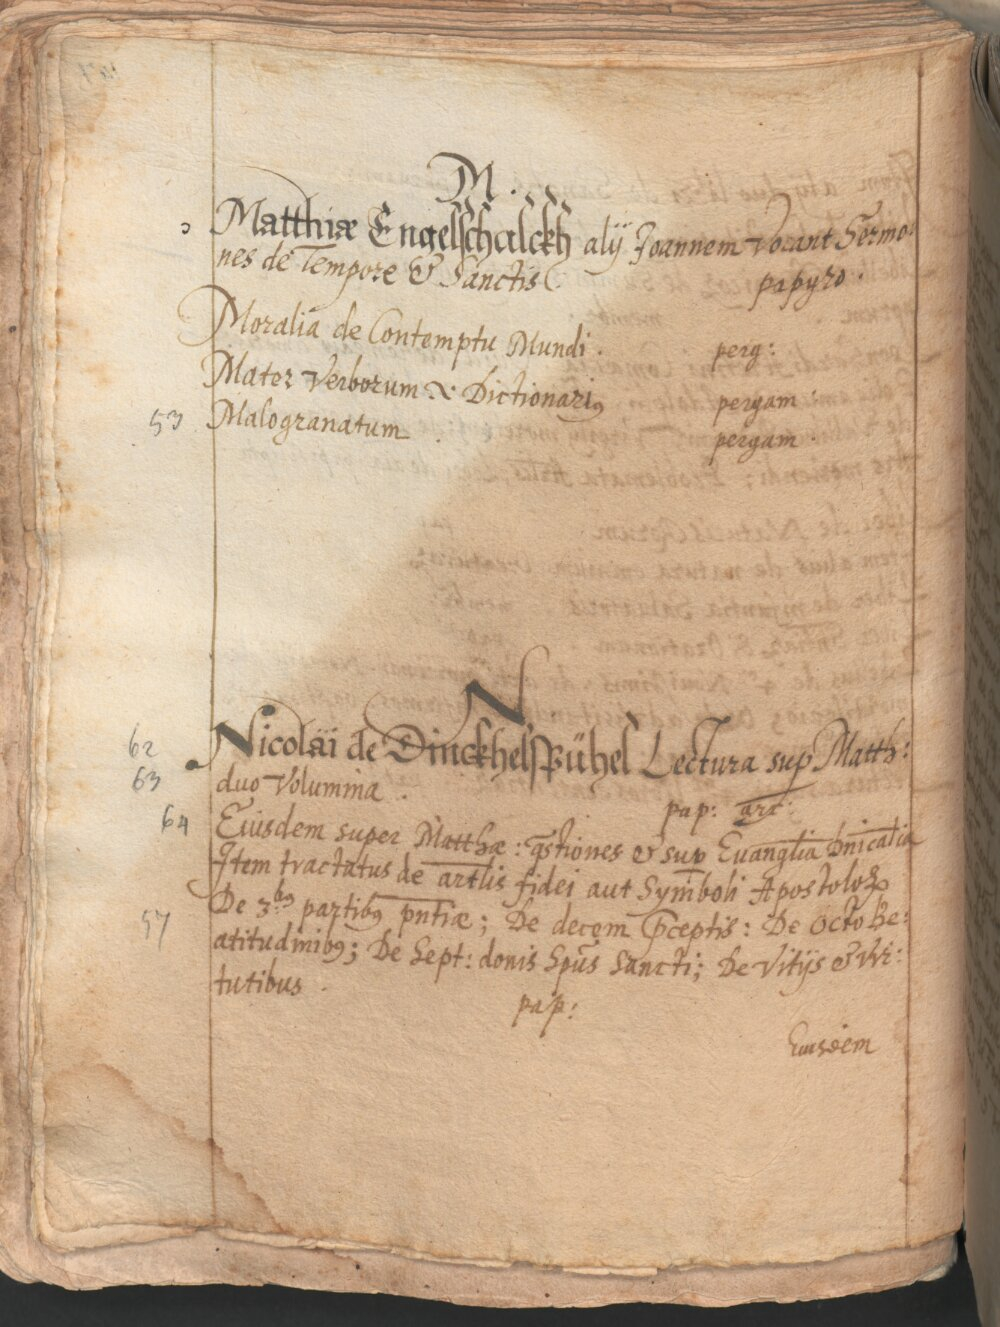 M.
Matthiæ Engelschalckh alij Joannem vocant Sermo:
nes de Tempore & Sanctis papyro.
Moralia de Contemptu Mundi. perg:
Mater Verborum & Dictionariꝰ pergam:
53 Malogranatum. pergam:
N
62 Nicolai de Dinckhelspühel Lectura sup Matth:
63 duo Volumina. pap: arc:
64 Eiusdem super Matthæ: qstiones & sup Euanglia dnicalia
Item tractatus de artlis fidei aut Symboli Apostoloꝝ
De 3bꝰ partibꝰ pntiæ; De decem pceptis: De octo Be:
57 atitudinibꝰ; De Sept: donis Spus Sancti; De Vitijs & Vir:
tutibus. pap:
Eiusdem